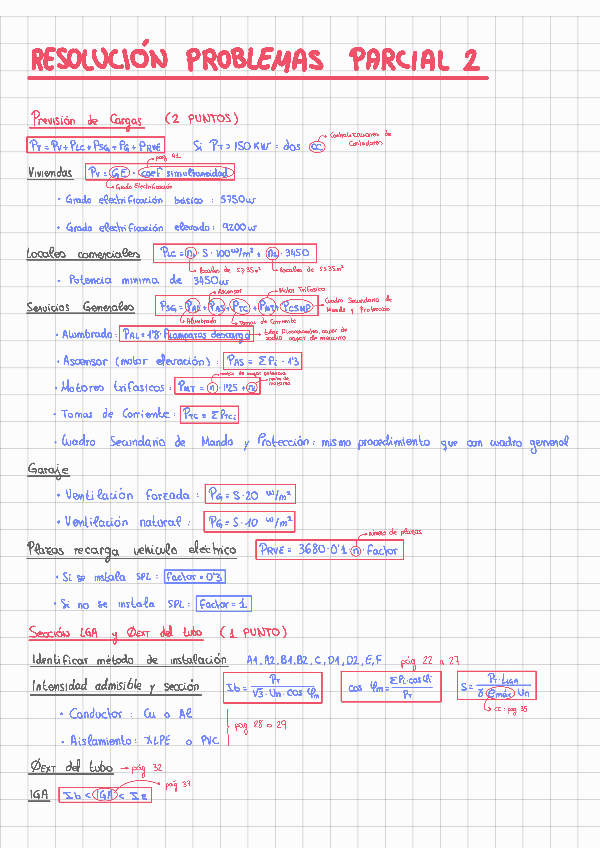 RESOLUCIÓN PROBLEMAS PARCIAL 2
Previsión de Cargas (2 PUNTOS)
PT = PV + PLC + PSG + PG + PRVE Si PT > 150 KW = dos CC → Centralizaciones de Contadores
pág 41
Viviendas PV = GE · coef simultaneidad
Grado Electrificación
· Grado electrificación básico : 5750 w
· Grado electrificación elevado : 9200 w
Locales comerciales PLC = n1 · S · 100 w/m² + n2 · 3450
locales de S≥35m² locales de S≤35m²
· Potencia mínima de 3450 w
Ascensor Motor Trifásico
Servicios Generales PSG = PAL + PAS + PTC + PMT + PCSMP Cuadro Secundario de Mando y Protección
Alumbrado Tomas de Corriente
· Alumbrado : PAL = 1'8 · Plámparas descarga → tubos fluorescentes, vapor de sodio vapor de mercurio
· Ascensor (motor elevación) : PAS = ΣPi · 1'3
motor de mayor potencia
· Motores trifásicos : PMT = n · 1'25 + n2
· Tomas de Corriente : PTC = ΣPTCi
· Cuadro Secundario de Mando y Protección : mismo procedimiento que con cuadro general
Garaje
· Ventilación forzada : PG = S · 20 w/m²
· Ventilación natural : PG = S · 10 w/m²
Plazas recarga vehículo eléctrico PRVE = 3680 · 0'1 · n · Factor → número de plazas
· Si se instala SPL : factor = 0'3
· Si no se instala SPL : factor = 1
Sección LGA y ØEXT del tubo (1 PUNTO)
Identificar método de instalación A1, A2, B1, B2, C, D1, D2, E, F pág 22 a 27
Intensidad admisible y sección Ib = PT / √3 · Un · cos φm cos φm = ΣPi · cos φi / PT S = PT · LLGA / γ · emáx · Un
CC : pág 35
· Conductor : Cu o Al
pág 28 o 29
· Aislamiento : XLPE o PVC
ØEXT del tubo → pág 32
IGA Ib < IGA < Iz → pág 37